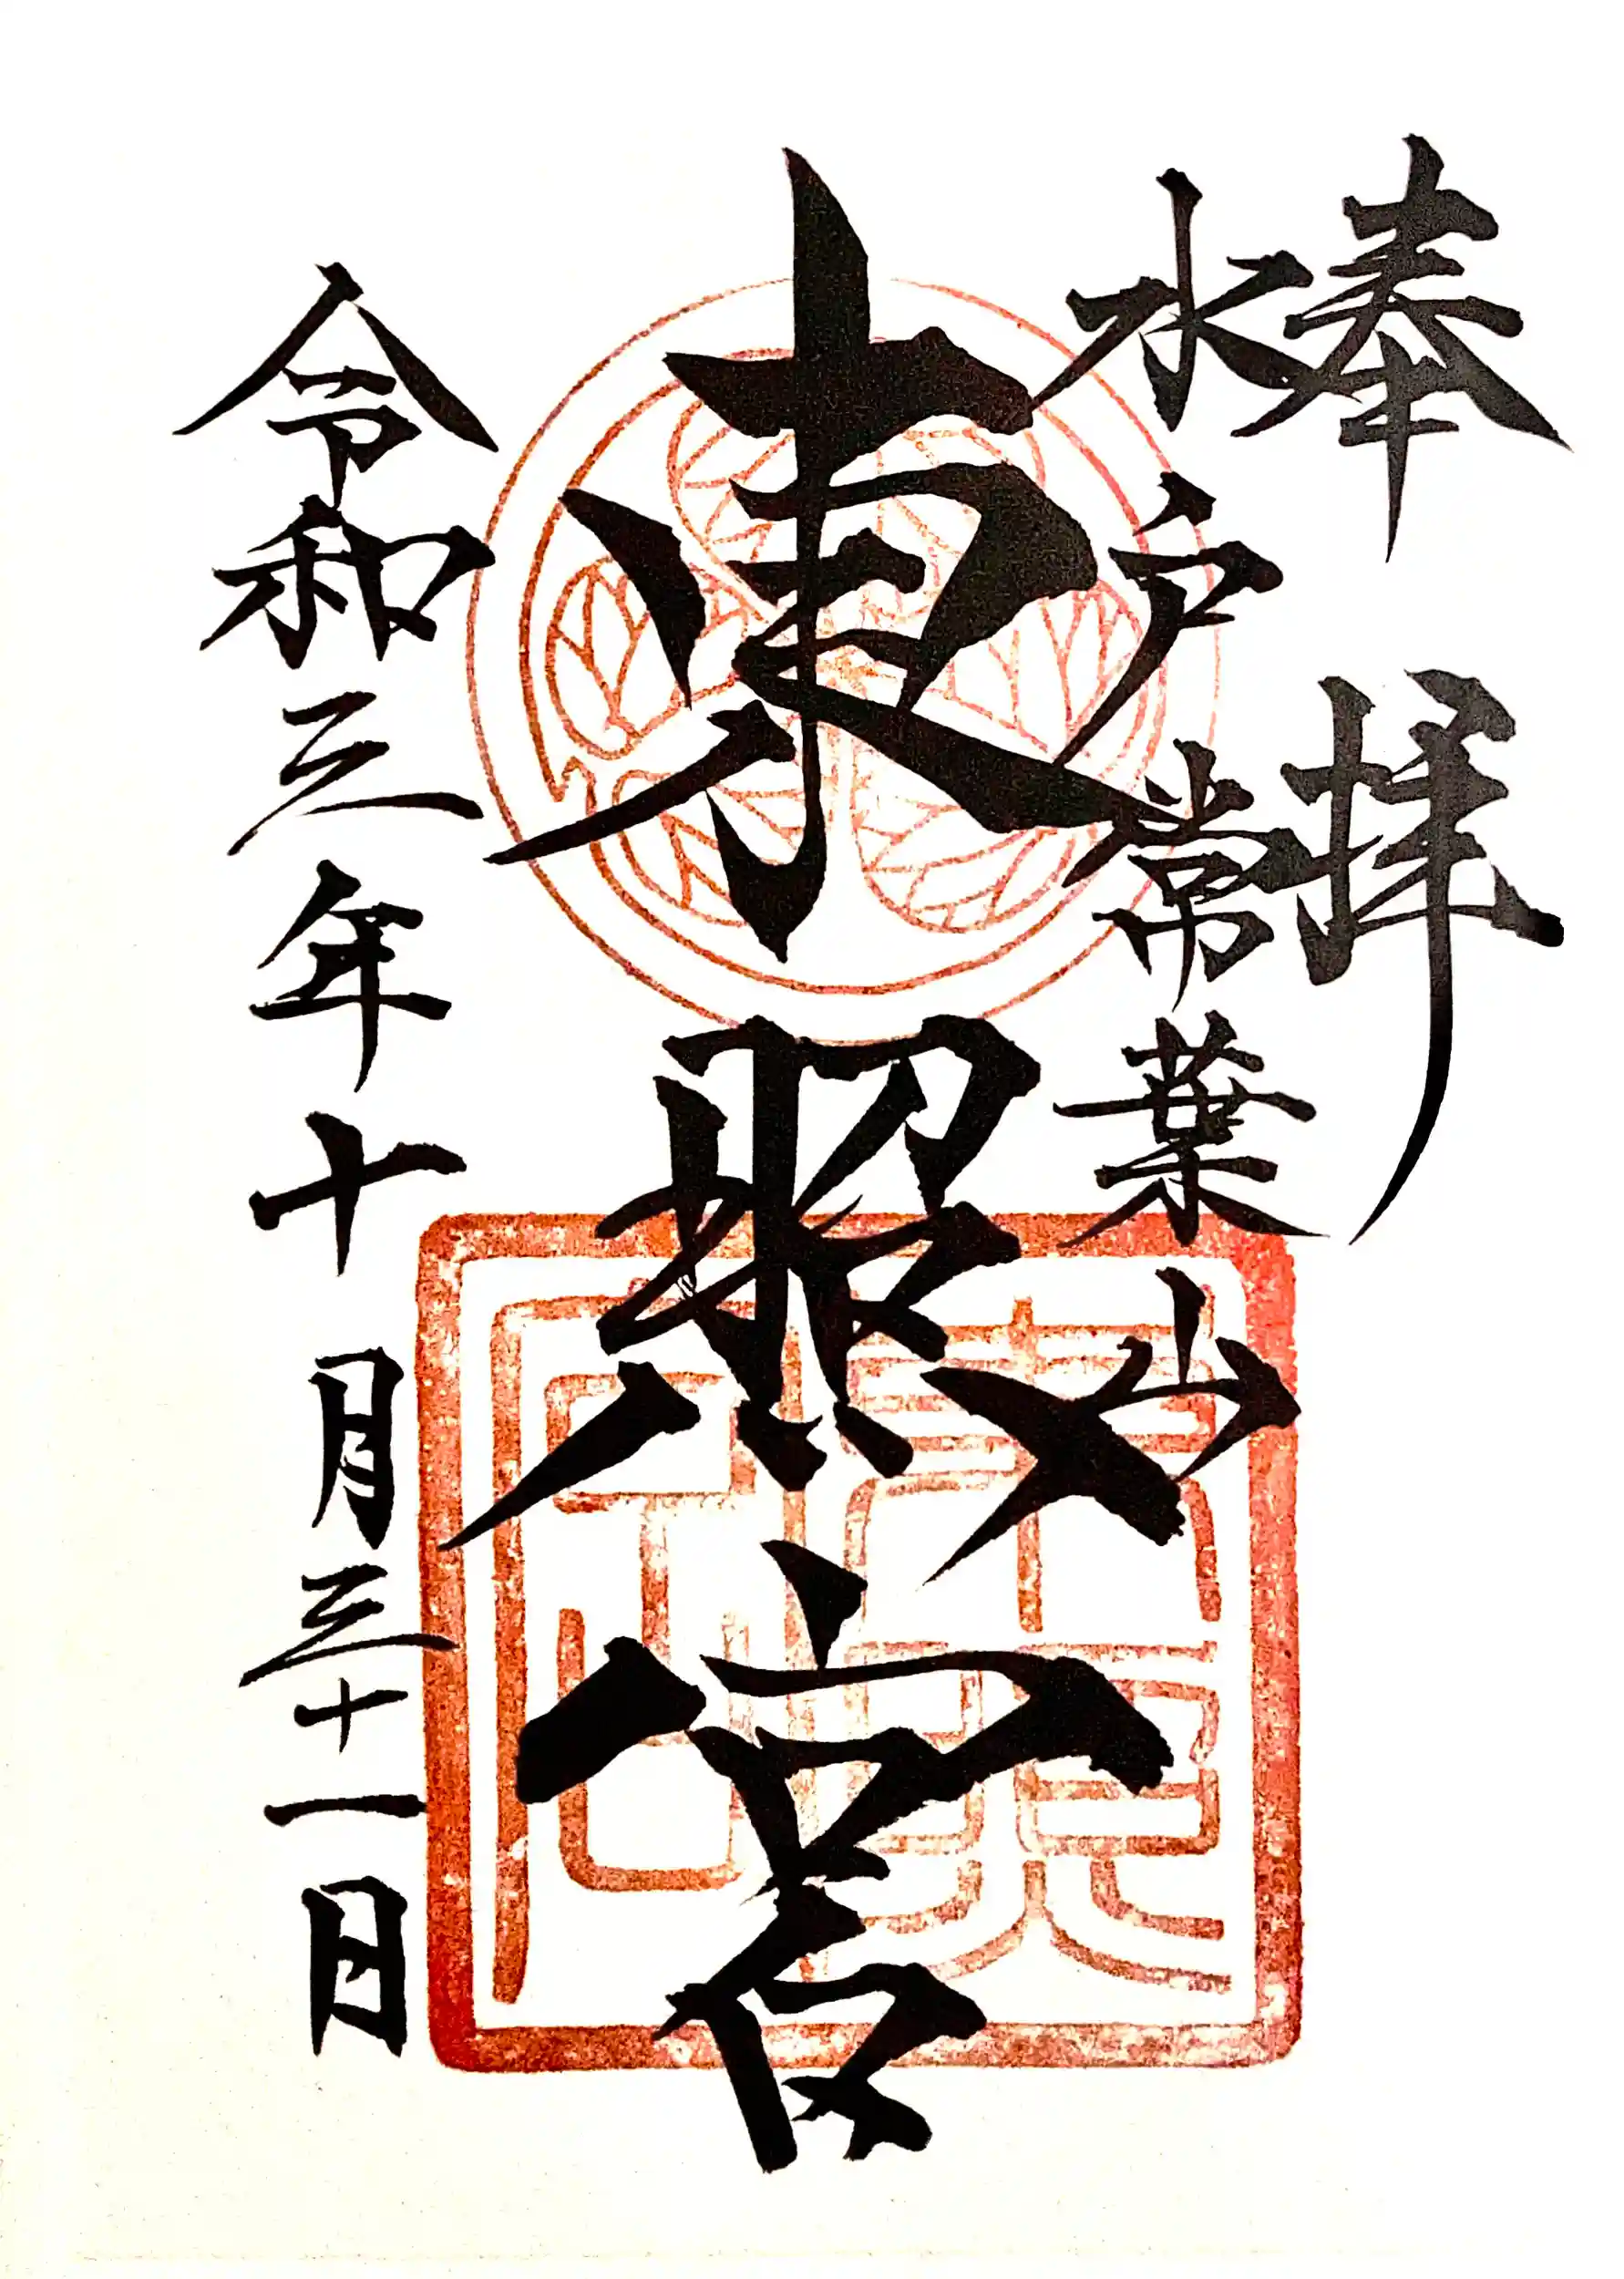 奉拝
水戸常葉山
東照宮
令和三年十月三十一日